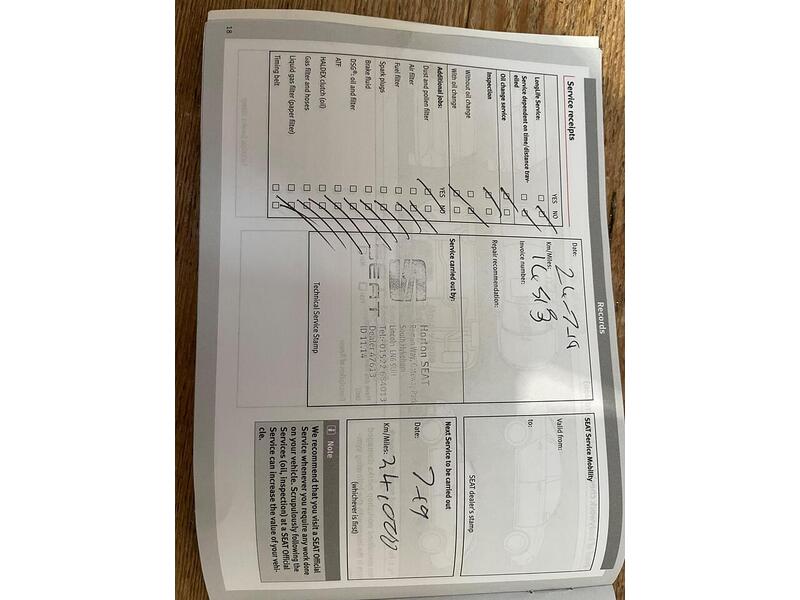 Records
Service receipts
YES NO
LongLife Service:
Service dependent on time/distance trav-
elled
Oil change service
Inspection
Without oil change
With oil change
Additional jobs: YES NO
Dust and pollen filter
Air filter
Fuel filter
Spark plugs
Brake fluid
DSG®: oil and filter
ATF
HALDEX clutch (oil)
Gas filter and hoses
Liquid gas filter (paper filter)
Timing belt
Date:
Km/Miles:
Invoice number:
Repair recommendation:
Service carried out by:
SEAT
Horton SEAT
Tel: 01522 684013
Dealer 47613
ID 11.14
Technical Service Stamp
SEAT Service Mobility
Valid from:
to:
SEAT dealer's stamp
Next Service to be carried out
Date:
Km/Miles: 24,000
(whichever is first)
i Note
We recommend that you visit a SEAT Official
Service whenever you require any work done
on your vehicle. Scrupulously following the
Services (oil, inspection) at a SEAT Official
Service can increase the value of your vehi-
cle.
18